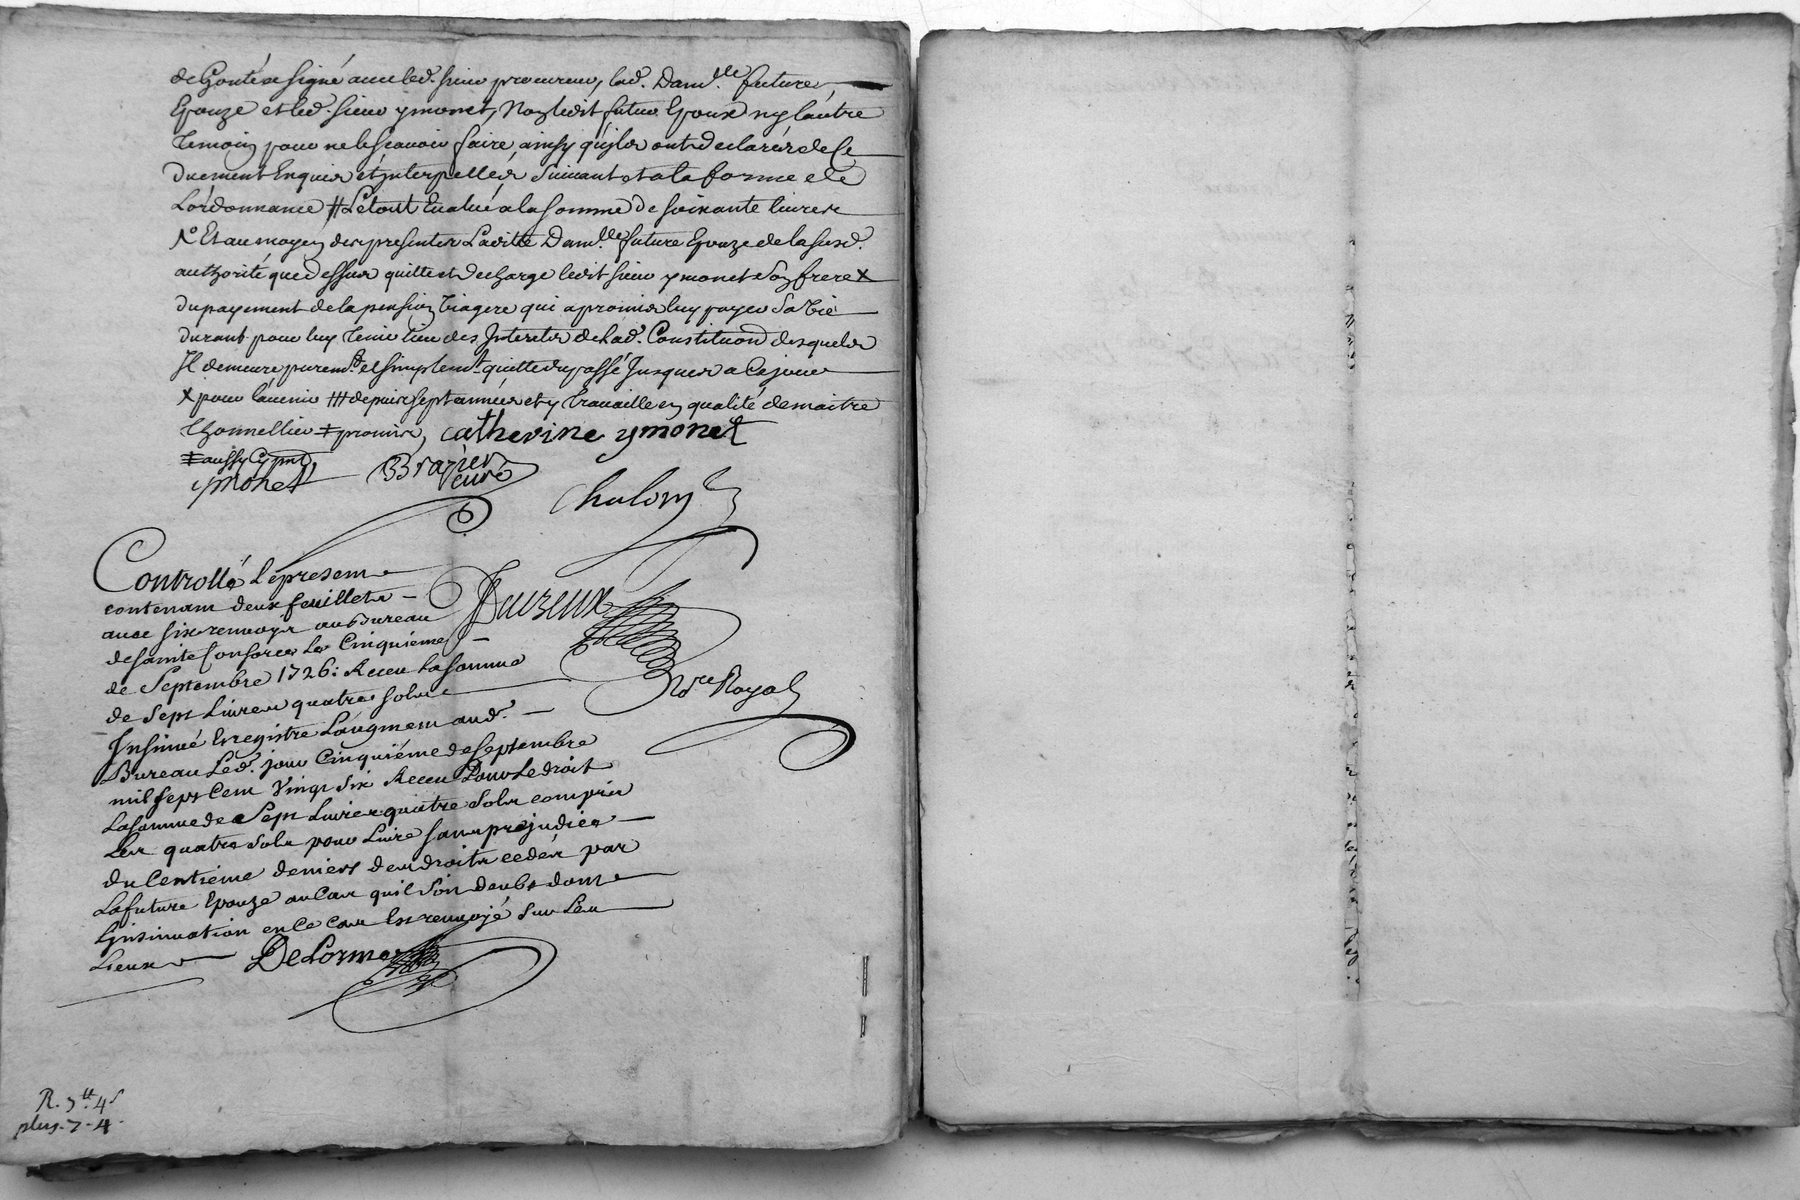 de Gontés signé avec led. sieur procureur, lad. Dam.lle future,
Epouze et led. sieur ymonet, Non ledit futur Epoux ny l'autre
Temoin pour ne le sçavoir faire, ainsy qu'ils ont declarés de ce
Duement Enquis et jnterpellés, suivant et a la forme de
L'ordonnance # Le tout Evalué a la somme de soixante livres
Et au moyen des presentes Laditte Dam.lle future Epouze de la susd.
authorité que dessus quitte et decharge ledit sieur ymonet son frere X
du payement de la pension viagere qui a promis luy payer sa vie
durant pour luy Tenir lieu des Jnterets de Lad. Constitution desquels
Jl demeure purem.t et simplem.t quitte du passé Jusques a Ce jour
X pour l'avenir ## depuis sept années et y Travaille en qualité de maitre
Thonnellier ‡ promis, catherine ymonet
‡ aussy Cy pnt,
ymonet Brazier curé
Chalom
Controllé le present
contenant deux feuillets
avec six renvoys au Bureau
de sainte Consorce Le Cinquiéme
de Septembre 1726: Receu la somme
de Sept Livres quatre sols
Duizeux
N.re Royal
Jnsinué Enregistré L'augment aud.
Bureau Led. jour Cinquiéme de septembre
mil sept Cent vingt six Receu Pour Le droit
La somme de Sept Livres quatre sols compris
Les quatre sols pour Livre sans prejudice
du Centiéme deniers des droits cedés par
La future Epouze au Cas qu'il soit deubt dont
L'jnsinuation en Ce Cas Est renvoyé sur Les
Lieux DeLorme
R. 7.tt 4s
plus. 7 - 4.